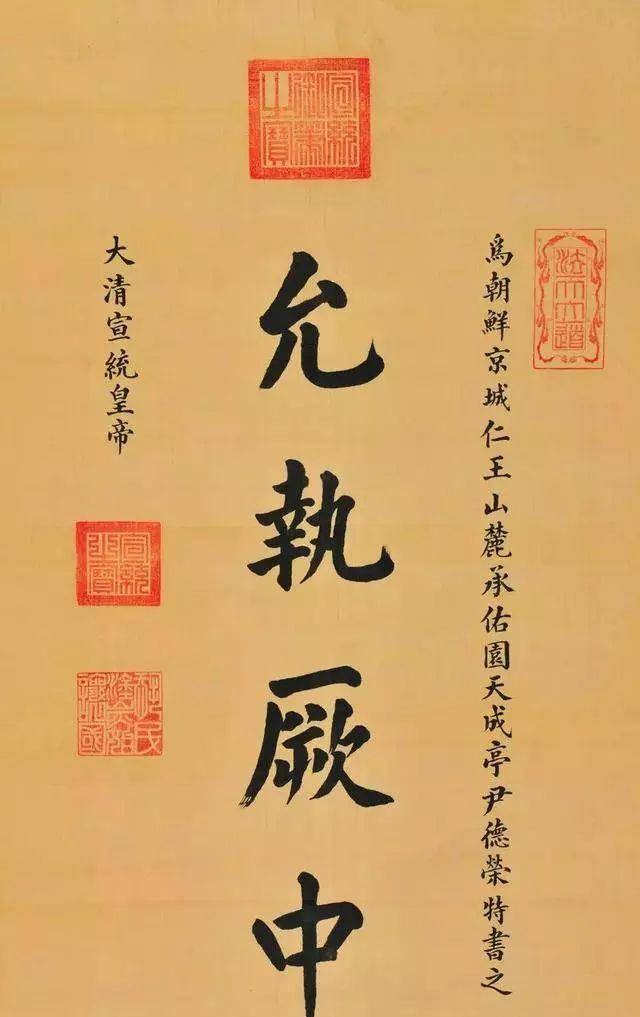 為朝鮮京城仁王山麓承佑園天成亭尹德榮特書之
宣統
御筆
之寶
允執厥中
大清宣統皇帝
宣統
之寶